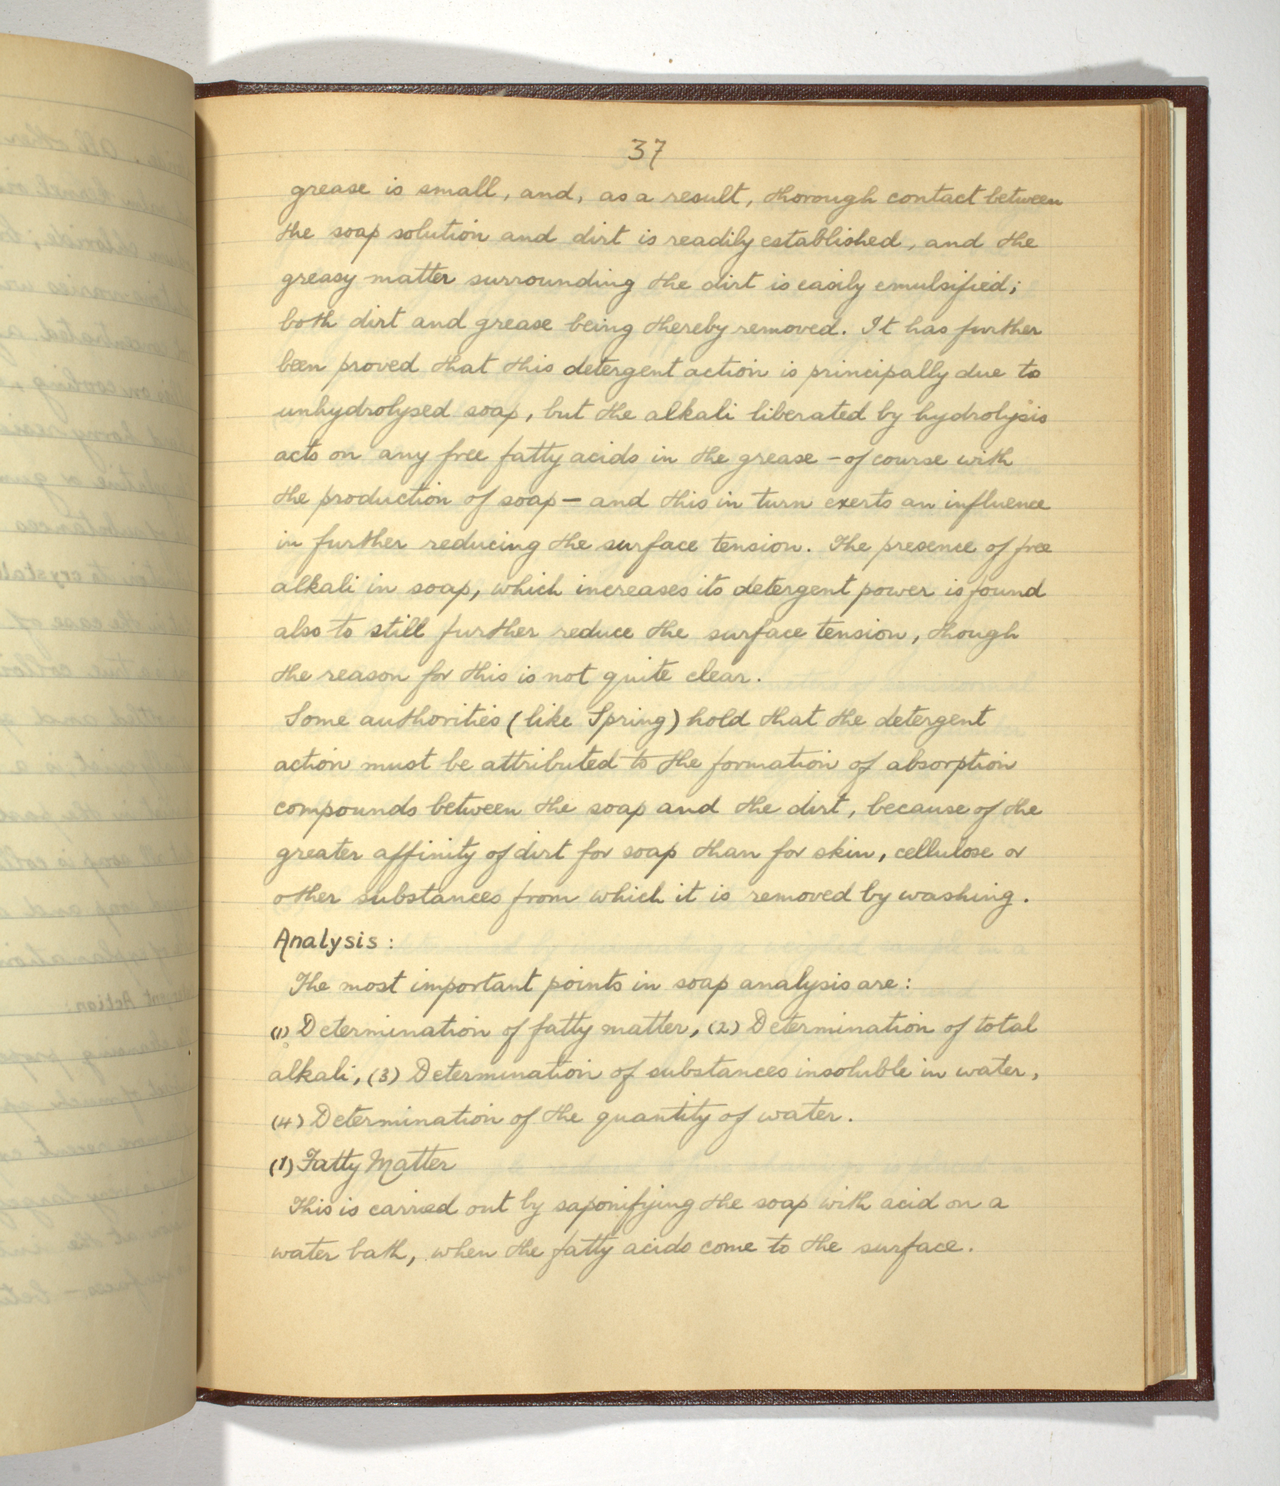 37
grease is small, and, as a result, thorough contact between
the soap solution and dirt is readily established, and the
greasy matter surrounding the dirt is easily emulsified;
both dirt and grease being thereby removed. It has further
been proved that this detergent action is principally due to
unhydrolysed soap, but the alkali liberated by hydrolysis
acts on any free fatty acids in the grease – of course with
the production of soap – and this in turn exerts an influence
in further reducing the surface tension. The presence of free
alkali in soap, which increases its detergent power is found
also to still further reduce the surface tension, though
the reason for this is not quite clear.
Some authorities (like Spring) hold that the detergent
action must be attributed to the formation of absorption
compounds between the soap and the dirt, because of the
greater affinity of dirt for soap than for skin, cellulose or
other substances from which it is removed by washing.
Analysis:
The most important points in soap analysis are:
(1) Determination of fatty matter, (2) Determination of total
alkali, (3) Determination of substances insoluble in water,
(4) Determination of the quantity of water.
(1) Fatty Matter
This is carried out by saponifying the soap with acid on a
water bath, when the fatty acids come to the surface.